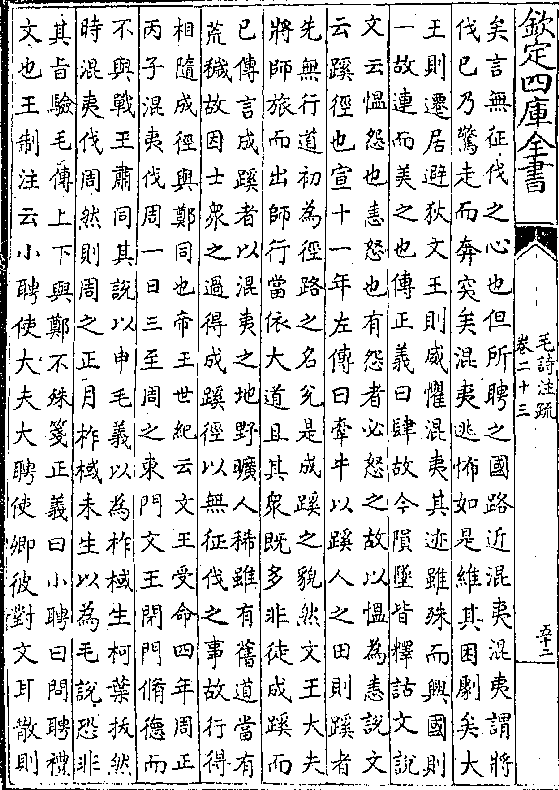 欽定四庫全書
毛詩注疏
卷二十三
五十二
矣言無征伐之心也但所聘之國路近混夷混夷謂將
伐已乃驚走而奔突矣混夷逃怖如是維其困劇矣大
王則遷居避狄文王則威懼混夷其迹雖殊而興國則
一故連而美之也傳正義曰肆故今隕墜皆釋詁文說
文云愠怨也恚怒也有怨者必怒之故以愠為恚說文
云蹊徑也宣十一年左傳曰牽牛以蹊人之田則蹊者
先無行道初為徑路之名兊是成蹊之貌然文王大夫
將師旅而出師行當依大道且其衆既多非徒成蹊而
已傳言成蹊者以混夷之地野曠人稀雖有舊道當有
荒穢故因士衆之過得成蹊徑以無征伐之事故行得
相隨成徑與鄭同也帝王世紀云文王受命四年周正
丙子混夷伐周一日三至周之東門文王閉門脩德而
不與戰王肅同其說以申毛義以為柞棫生柯葉拔然
時混夷伐周然則周之正月柞棫未生以為毛說恐非
其旨驗毛傳上下與鄭不殊箋正義曰小聘曰問聘禮
文也王制注云小聘使大夫大聘使卿彼對文耳散則